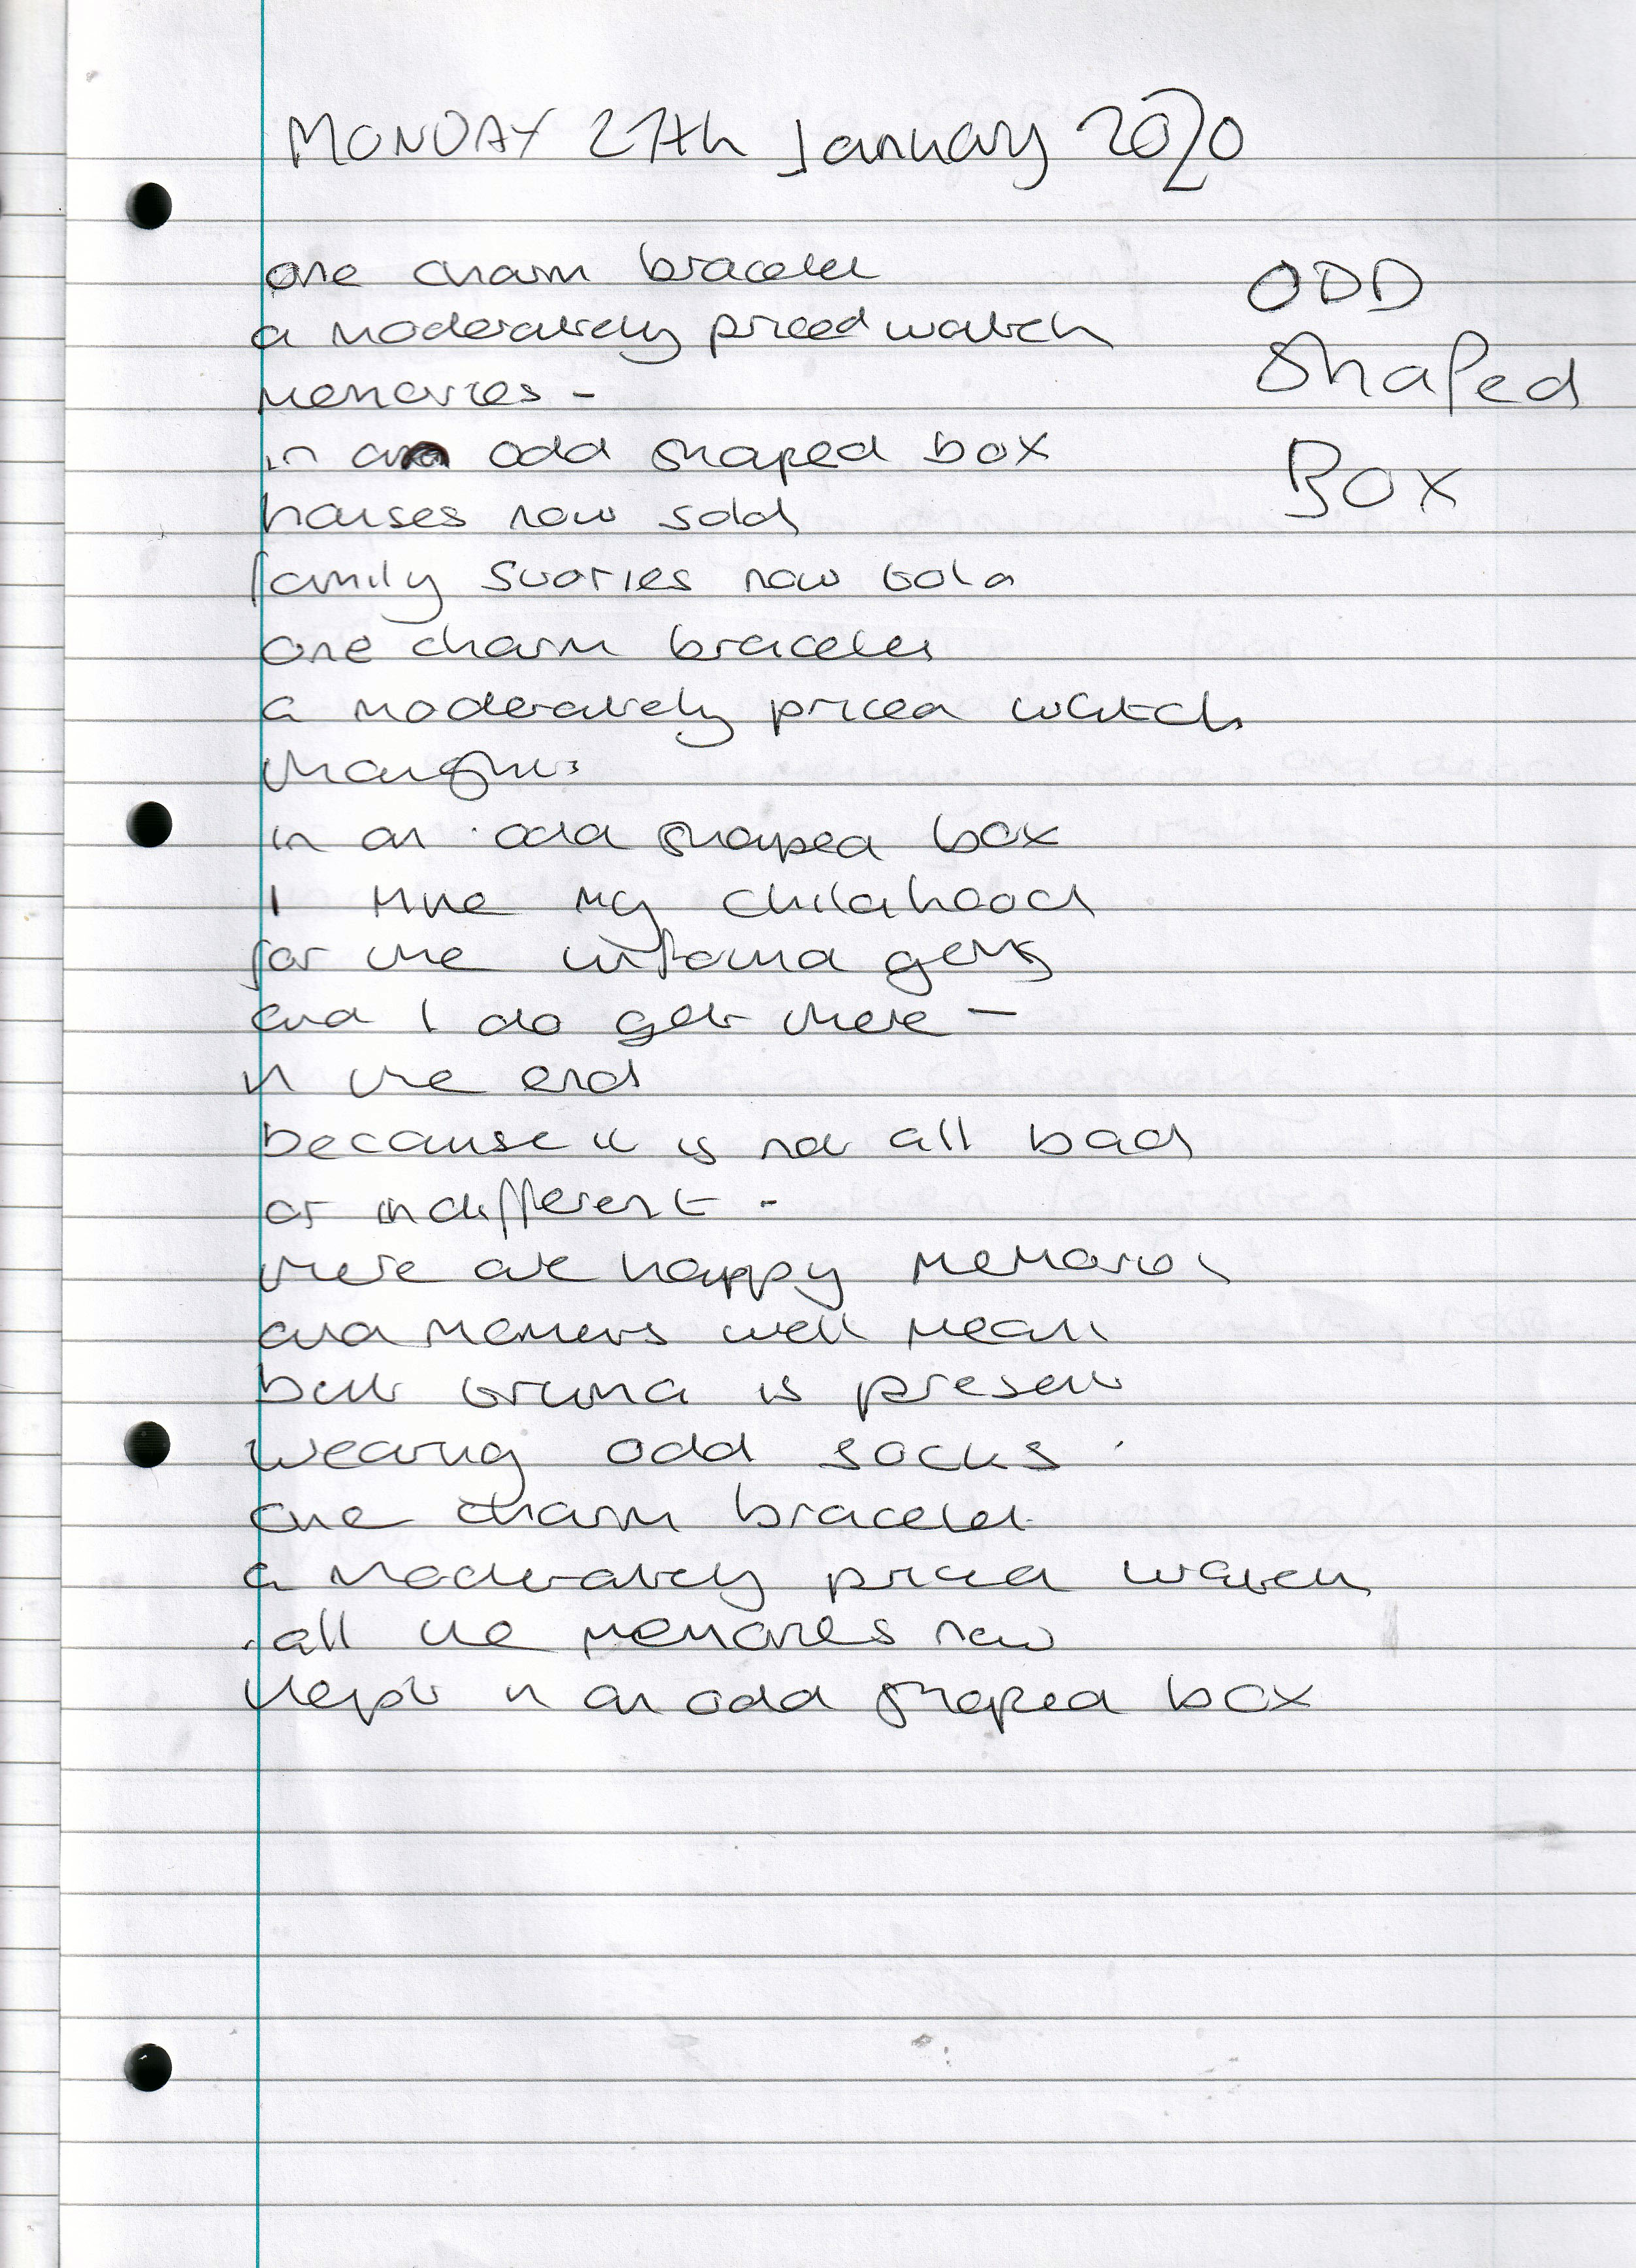 MONDAY 27th January 2020
ODD
Shaped
Box
one charm bracelet
a moderately priced watch
memories -
in an odd shaped box
houses now sold
family stories now told
one charm bracelet
a moderately priced watch
thoughts
in an odd shaped box
I mine my childhood
for the unfound gems
and I do get there -
in the end
because it is not all bad
or indifferent -
there are happy memories
and well mean
but is present
wearing odd socks
one charm bracelet
a moderately priced watch
all the memories now
kept in an odd shaped box